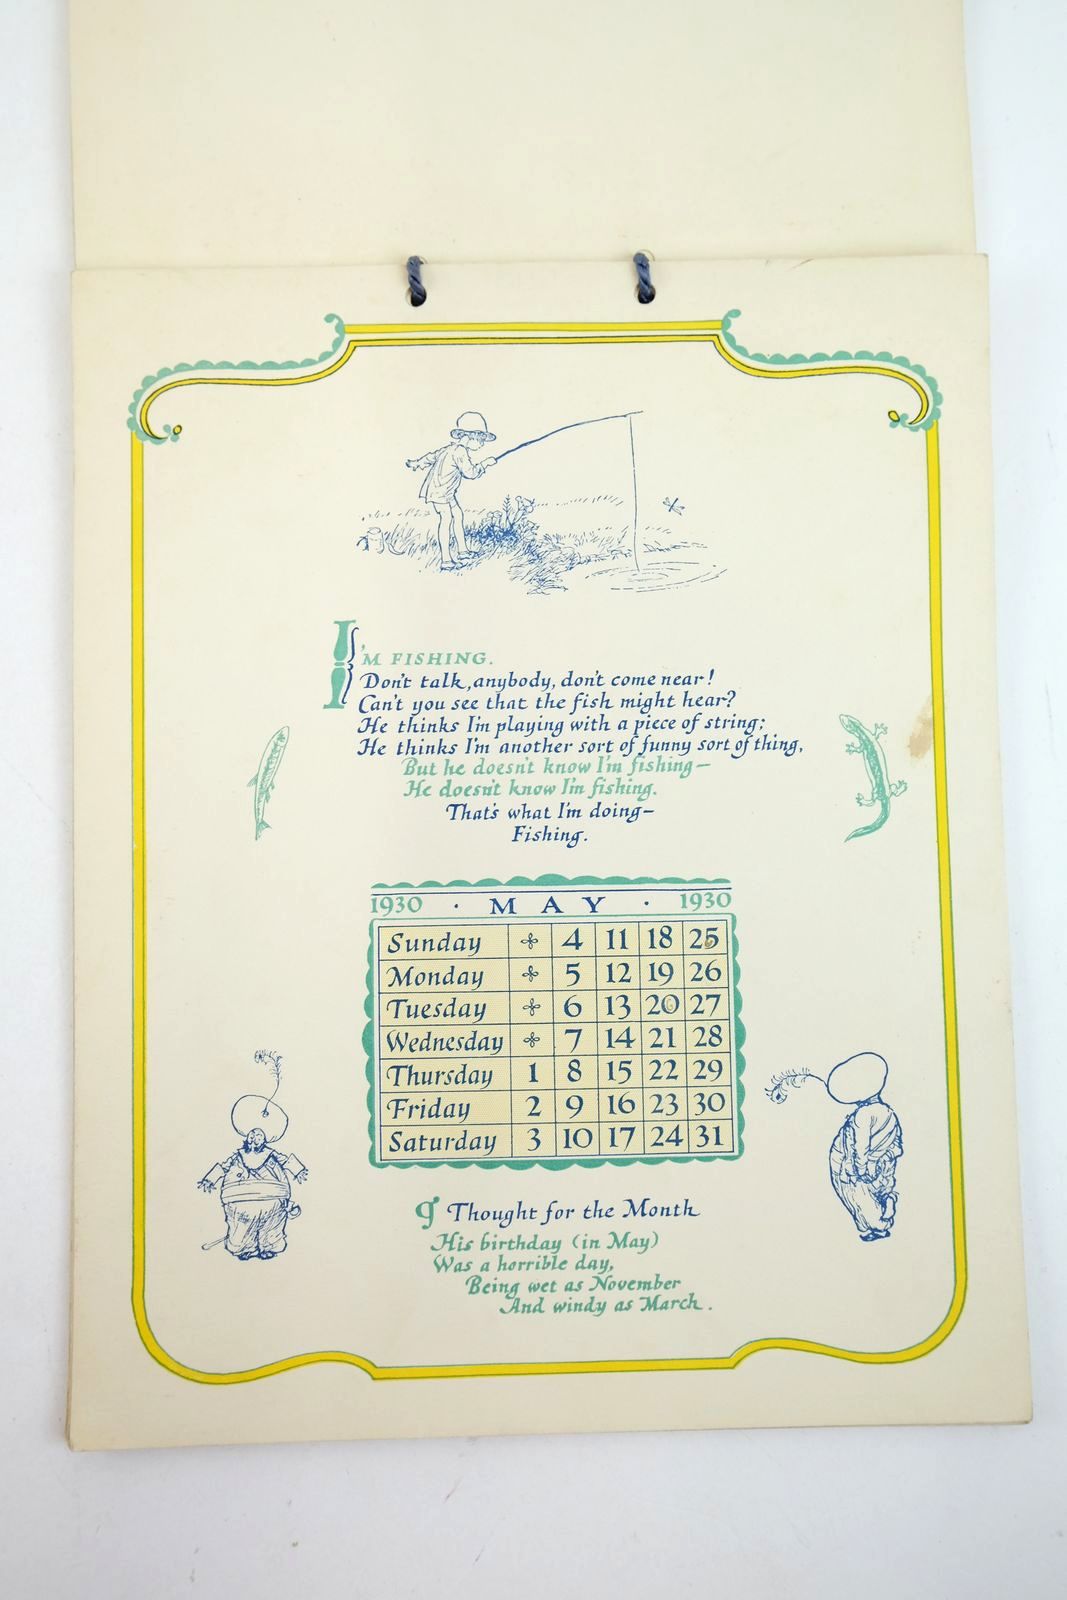 I'M FISHING.
Don't talk, anybody, don't come near!
Can't you see that the fish might hear?
He thinks I'm playing with a piece of string;
He thinks I'm another sort of funny sort of thing,
But he doesn't know I'm fishing—
He doesn't know I'm fishing.
That's what I'm doing—
Fishing.
1930 · MAY · 1930
Sunday 4 11 18 25
Monday 5 12 19 26
Tuesday 6 13 20 27
Wednesday 7 14 21 28
Thursday 1 8 15 22 29
Friday 2 9 16 23 30
Saturday 3 10 17 24 31
Thought for the Month
His birthday (in May)
Was a horrible day,
Being wet as November
And windy as March.